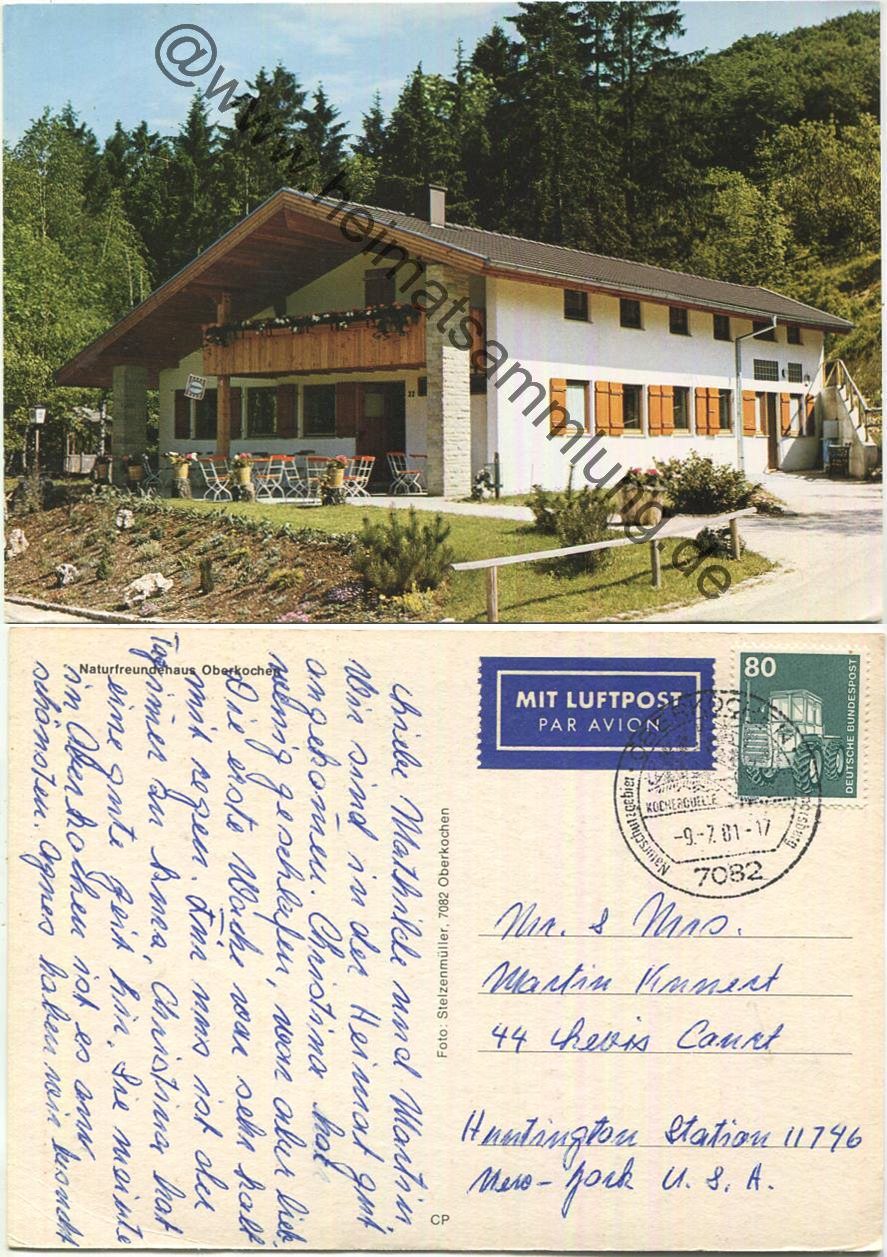 @www.heimatsammlung.de
37
Naturfreundehaus Oberkochen
MIT LUFTPOST
PAR AVION
80
DEUTSCHE BUNDESPOST
OBERKOCHEN
KOCHERQUELLE
-9.-7.81-17
7082
Foto: Stelzenmüller, 7082 Oberkochen
CP
Liebe Mathilde und Martin
Wir sind in der Heimat gut
angekomen. Christina hat
wenig geschlafen, war aber lieb.
Die erste Woche war sehr kalt
mit regen. Für uns ist der
Tag imer zu kurz, Christina hat
eine gute Zeit hir. Sie meinte
in Oberkochen ist es am
schönsten. Agnes haben wir
Mr. & Mrs.
Martin Kunert
44 Lewis Court
Huntington Station 11746
New-York U. S. A.